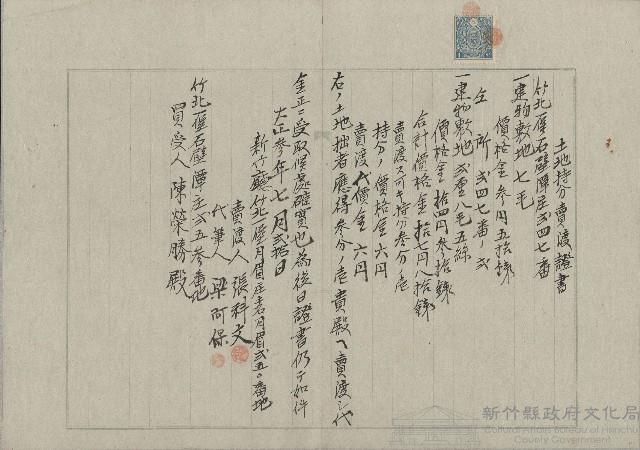 土地持分賣渡證書
竹北一堡石壁潭庄弍四七番
一建物敷地七毛
價格金參円五拾錢
仝所弍四七番ノ弍
一建物敷地弍厘八毛五絲
價格金拾四円參拾錢
合計價格金拾七円八拾錢
賣渡スベキ持分參分ノ壱
持分ノ價格金六円
賣渡代價金六円
右ノ土地拙者應得參分ノ壱貴殿ヘ賣渡シ代
金正ニ受取候處確實也為後日證書仍テ如件
大正參年七月弍拾日
新竹廳竹北一堡月眉庄土名月眉弍五〇番地
賣渡人 張科文
代筆人 梁阿保
竹北一堡石壁潭庄弍五參番地
買受人 陳榮勝殿
新竹縣政府文化局
Cultural Affairs Bureau of Hsinchu
County Government